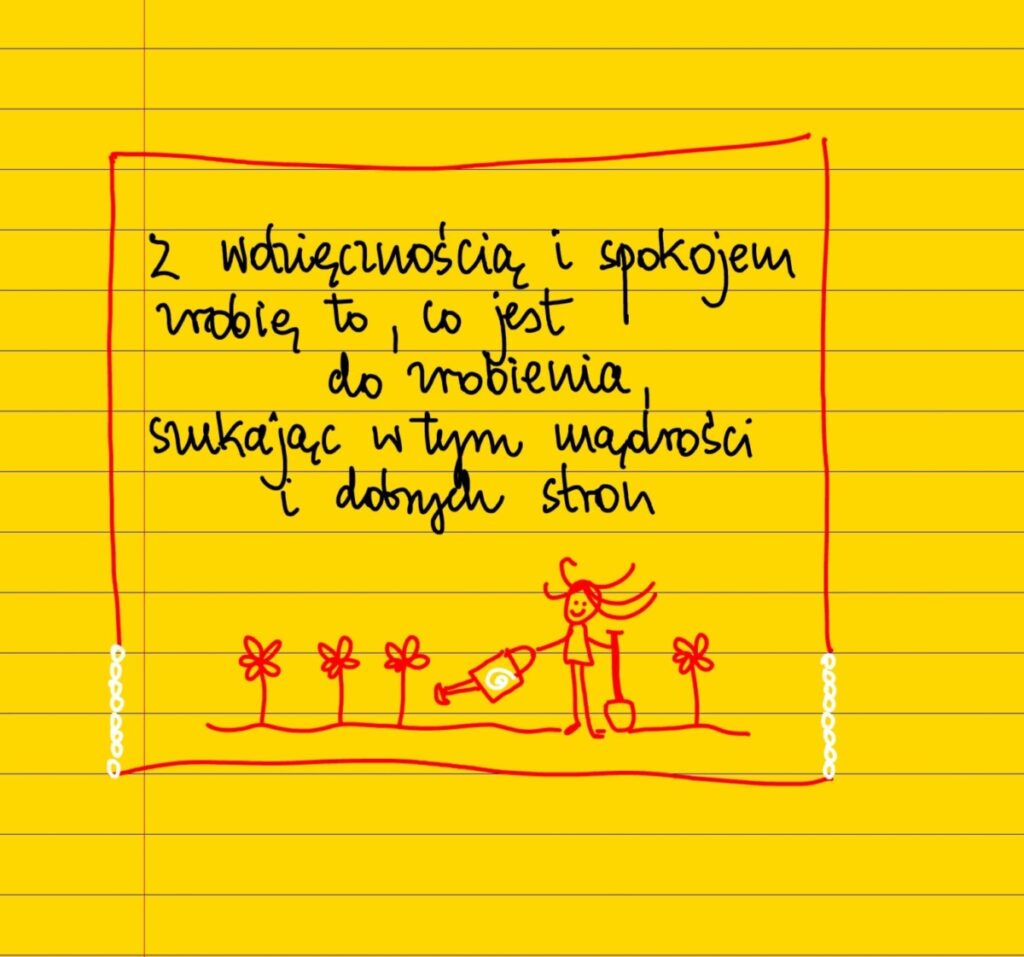 Z wdzięcznością i spokojem
zrobię to, co jest
do zrobienia,
szukając w tym mądrości
i dobrych stron